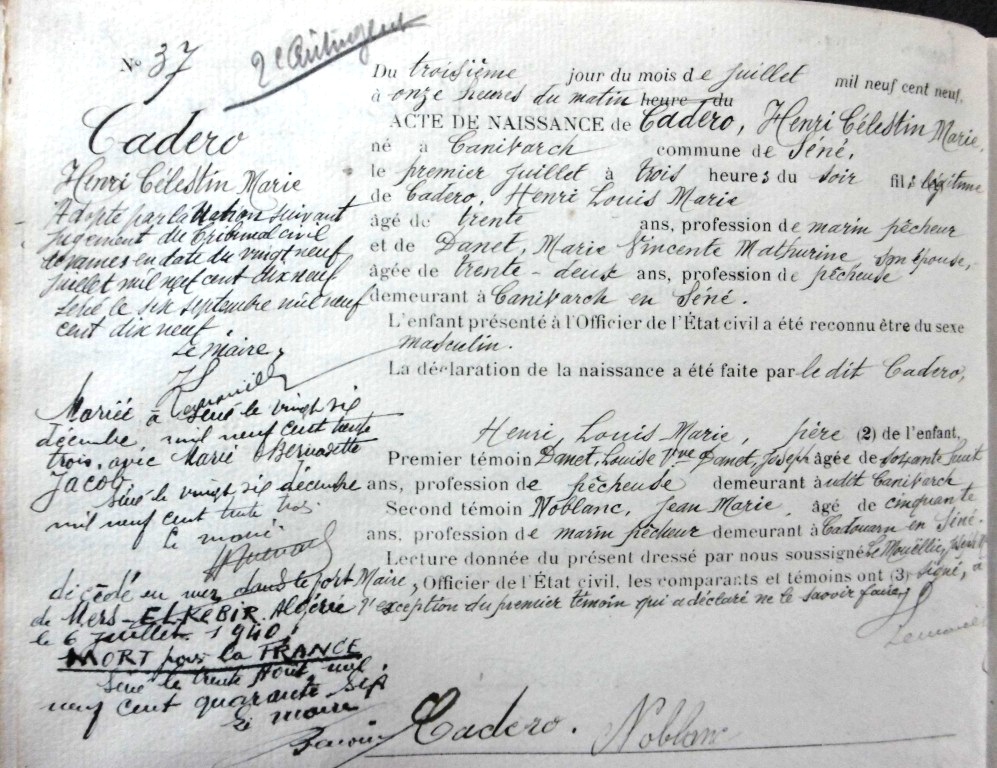 N° 37
2e Contingent
Cadero
Henri Célestin Marie
Adopté par la Nation suivant
jugement du Tribunal civil
de Vannes en date du vingt neuf
juillet mil neuf cent dix neuf
Séné, le six septembre mil neuf
cent dix neuf.
Le Maire,
Marié à Séné le vingt six
décembre mil neuf cent trente
trois, avec Marie Bernadette
Jacob
Séné le vingt six décembre
mil neuf cent trente trois
Le maire
décédé en mer dans le port
de Mers-EL KEBIR. Algérie
le 6 juillet 1940,
MORT pour la FRANCE
Séné le trente Août mil
neuf cent quarante six
Le maire
Du troisième jour du mois de juillet mil neuf cent neuf,
à onze heures du matin heure du
ACTE DE NAISSANCE de Cadero, Henri Célestin Marie,
né à Canivarch commune de Séné,
le premier juillet à trois heures du soir fils légitime
de Cadero, Henri Louis Marie
âgé de trente ans, profession de marin pêcheur
et de Danet, Marie Vincente Mathurine, son épouse,
âgée de trente-deux ans, profession de pêcheuse
demeurant à Canivarch en Séné.
L'enfant présenté à l'Officier de l'État civil a été reconnu être du sexe
masculin.
La déclaration de la naissance a été faite par le dit Cadero,
Henri, Louis Marie, père (2) de l'enfant,
Premier témoin Danet, Louise Vve Danet, Joseph âgée de soixante huit
ans, profession de pêcheuse demeurant à udit Canivarch
Second témoin Noblanc, Jean Marie, âgé de cinquante
ans, profession de marin pêcheur demeurant à Cadouarn en Séné.
Lecture donnée du présent dressé par nous soussigné Le Mouëllic,
Maire, Officier de l'État civil, les comparants et témoins ont (3) signé, à
l'exception du premier témoin qui a déclaré ne le savoir faire,
Cadero. Noblanc